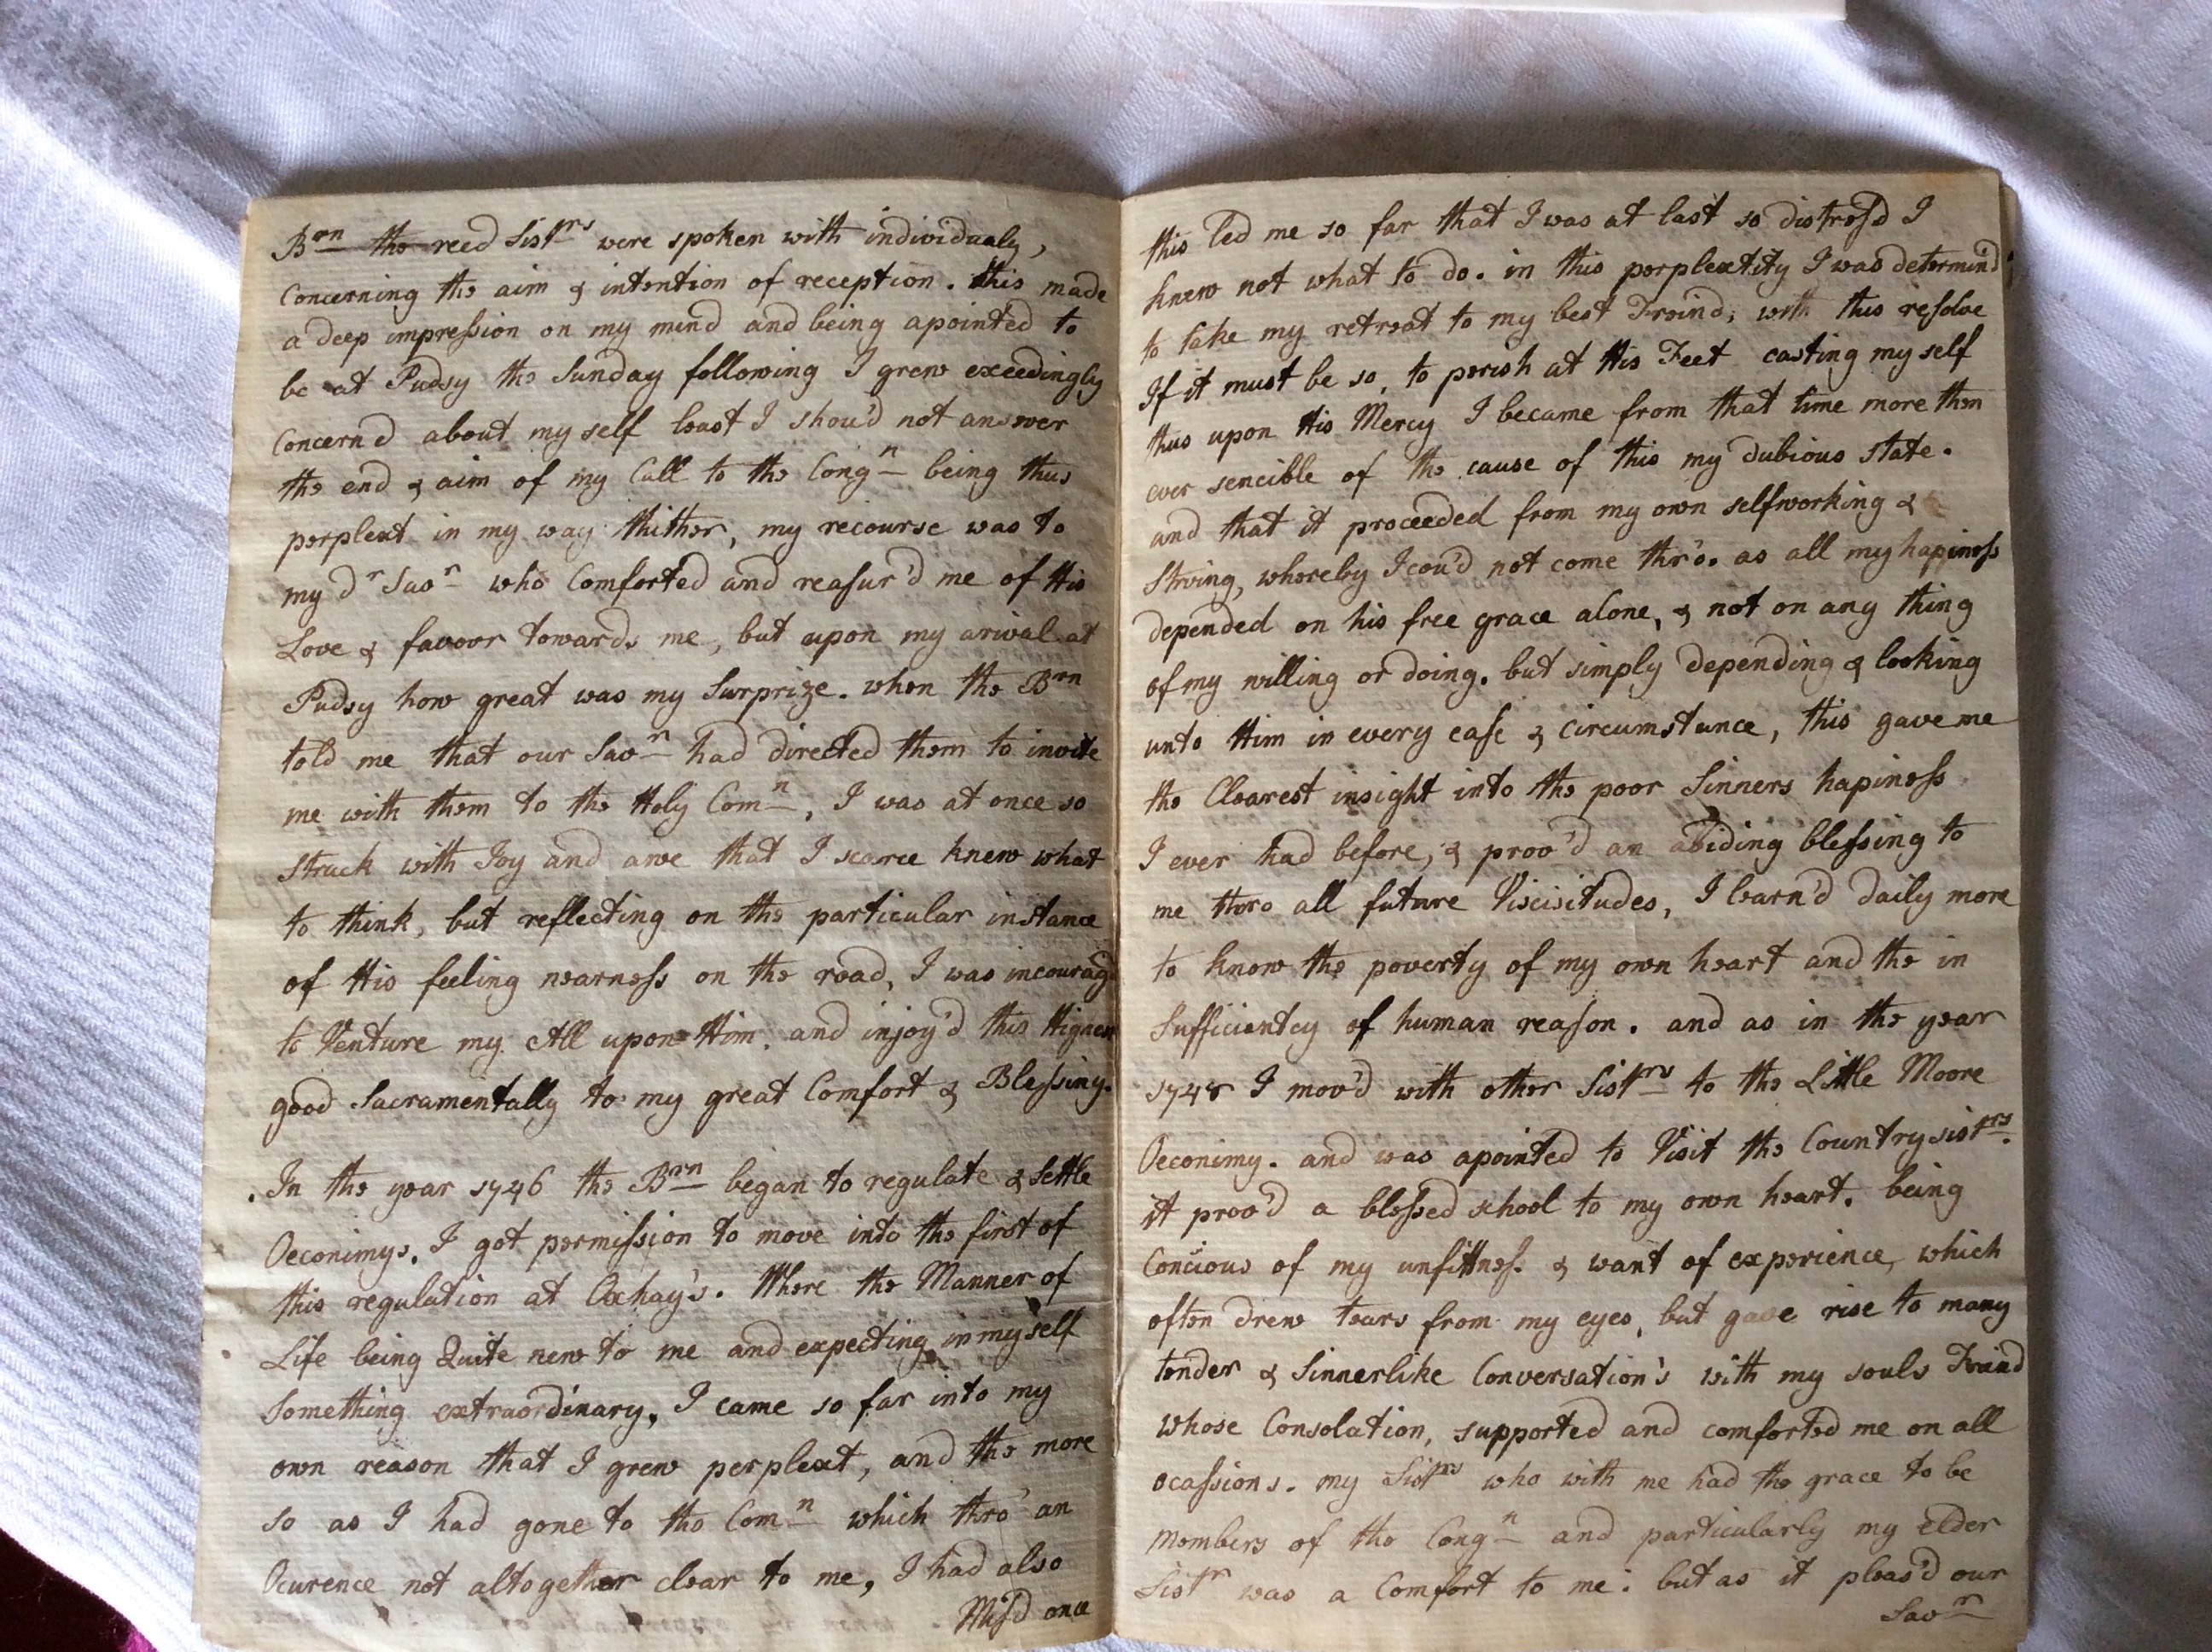 Brn the reed Sistrs were spoken with individualy,
Concerning the aim & intention of reception. this made
a deep impression on my mind and being apointed to
be at Pudsy the Sunday following I grew exceedingly
Concern'd about my self least I shou'd not answer
the end & aim of my Call to the Congn being thus
perplext in my way thither, my recourse was to
my dr Savr who Comforted and reasur'd me of His
Love & favoor towards me, but upon my arival at
Pudsy how great was my Surprize. when the Brn
told me that our Savr had directed them to invite
me with them to the Holy Comn, I was at once so
struck with Joy and awe that I scarce knew what
to think, but reflecting on the particular instance
of His feeling nearness on the road, I was incourag'd
to Venture my All upon Him. and injoy'd this Highest
good Sacramentally to my great Comfort & Blessing.
In the year 1746 the Brn began to regulate & Settle
Oeconimys. I got permission to move into the first of
this regulation at Oxhay's. Where the Manner of
Life being Quite new to me and expecting in my self
Something extraordinary, I came so far into my
own reason that I grew perplext, and the more
so as I had gone to the Comn which thro' an
Ocurence not altogether clear to me, I had also
Miss'd once
this led me so far that I was at last so distress'd I
knew not what to do. in this perplextity I was determind
to take my retreat to my best Freind, with this resolve
If it must be so, to perish at His Feet casting my self
thus upon His Mercy I became from that time more then
ever sencible of the cause of this my dubious state.
and that it proceeded from my own selfworking &
Striving, whereby I cou'd not come thr'o. as all my hapiness
depended on his free grace alone, & not on any thing
of my willing or doing. but simply depending & looking
unto Him in every case & Circumstance, this gave me
the Clearest insight into the poor Sinners hapiness
I ever had before, & proov'd an abiding blessing to
me thro all future Viscisitudes, I learn'd daily more
to know the poverty of my own heart and the in
Sufficientcy of human reason. and as in the year
1748 I mov'd with other Sistrs to the Little Moore
Oeconimy. and was apointed to Visit the Country sistrs.
it proov'd a blessed school to my own heart. being
Concious of my unfittness. & want of experience, which
often drew tears from my eyes, but gave rise to many
tender & Sinnerlike Conversation's with my souls Freind
whose Consolation, supported and comforted me on all
ocassions. my Sistrs who with me had the grace to be
Members of the Congn and particularly my elder
Sistr was a Comfort to me. but as it pleas'd our
Savr